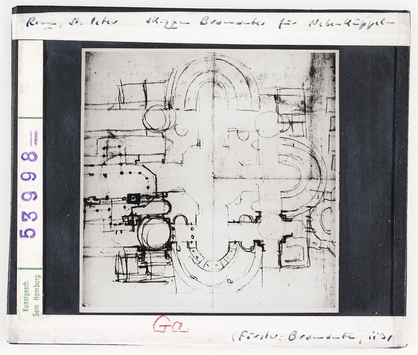 Rom, St. Peter Skizzen Bramantes für Nebenkuppeln
53998
Kunstgesch.
Sem Hamburg
(Förster: Bramante,